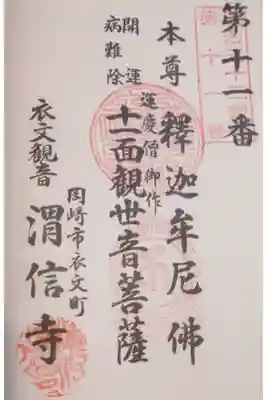 第十一番
本尊 釋迦牟尼佛
運慶僧御作
十一面観世音菩薩
開運
病難除
岡崎市衣文町
衣文観音 渭信寺